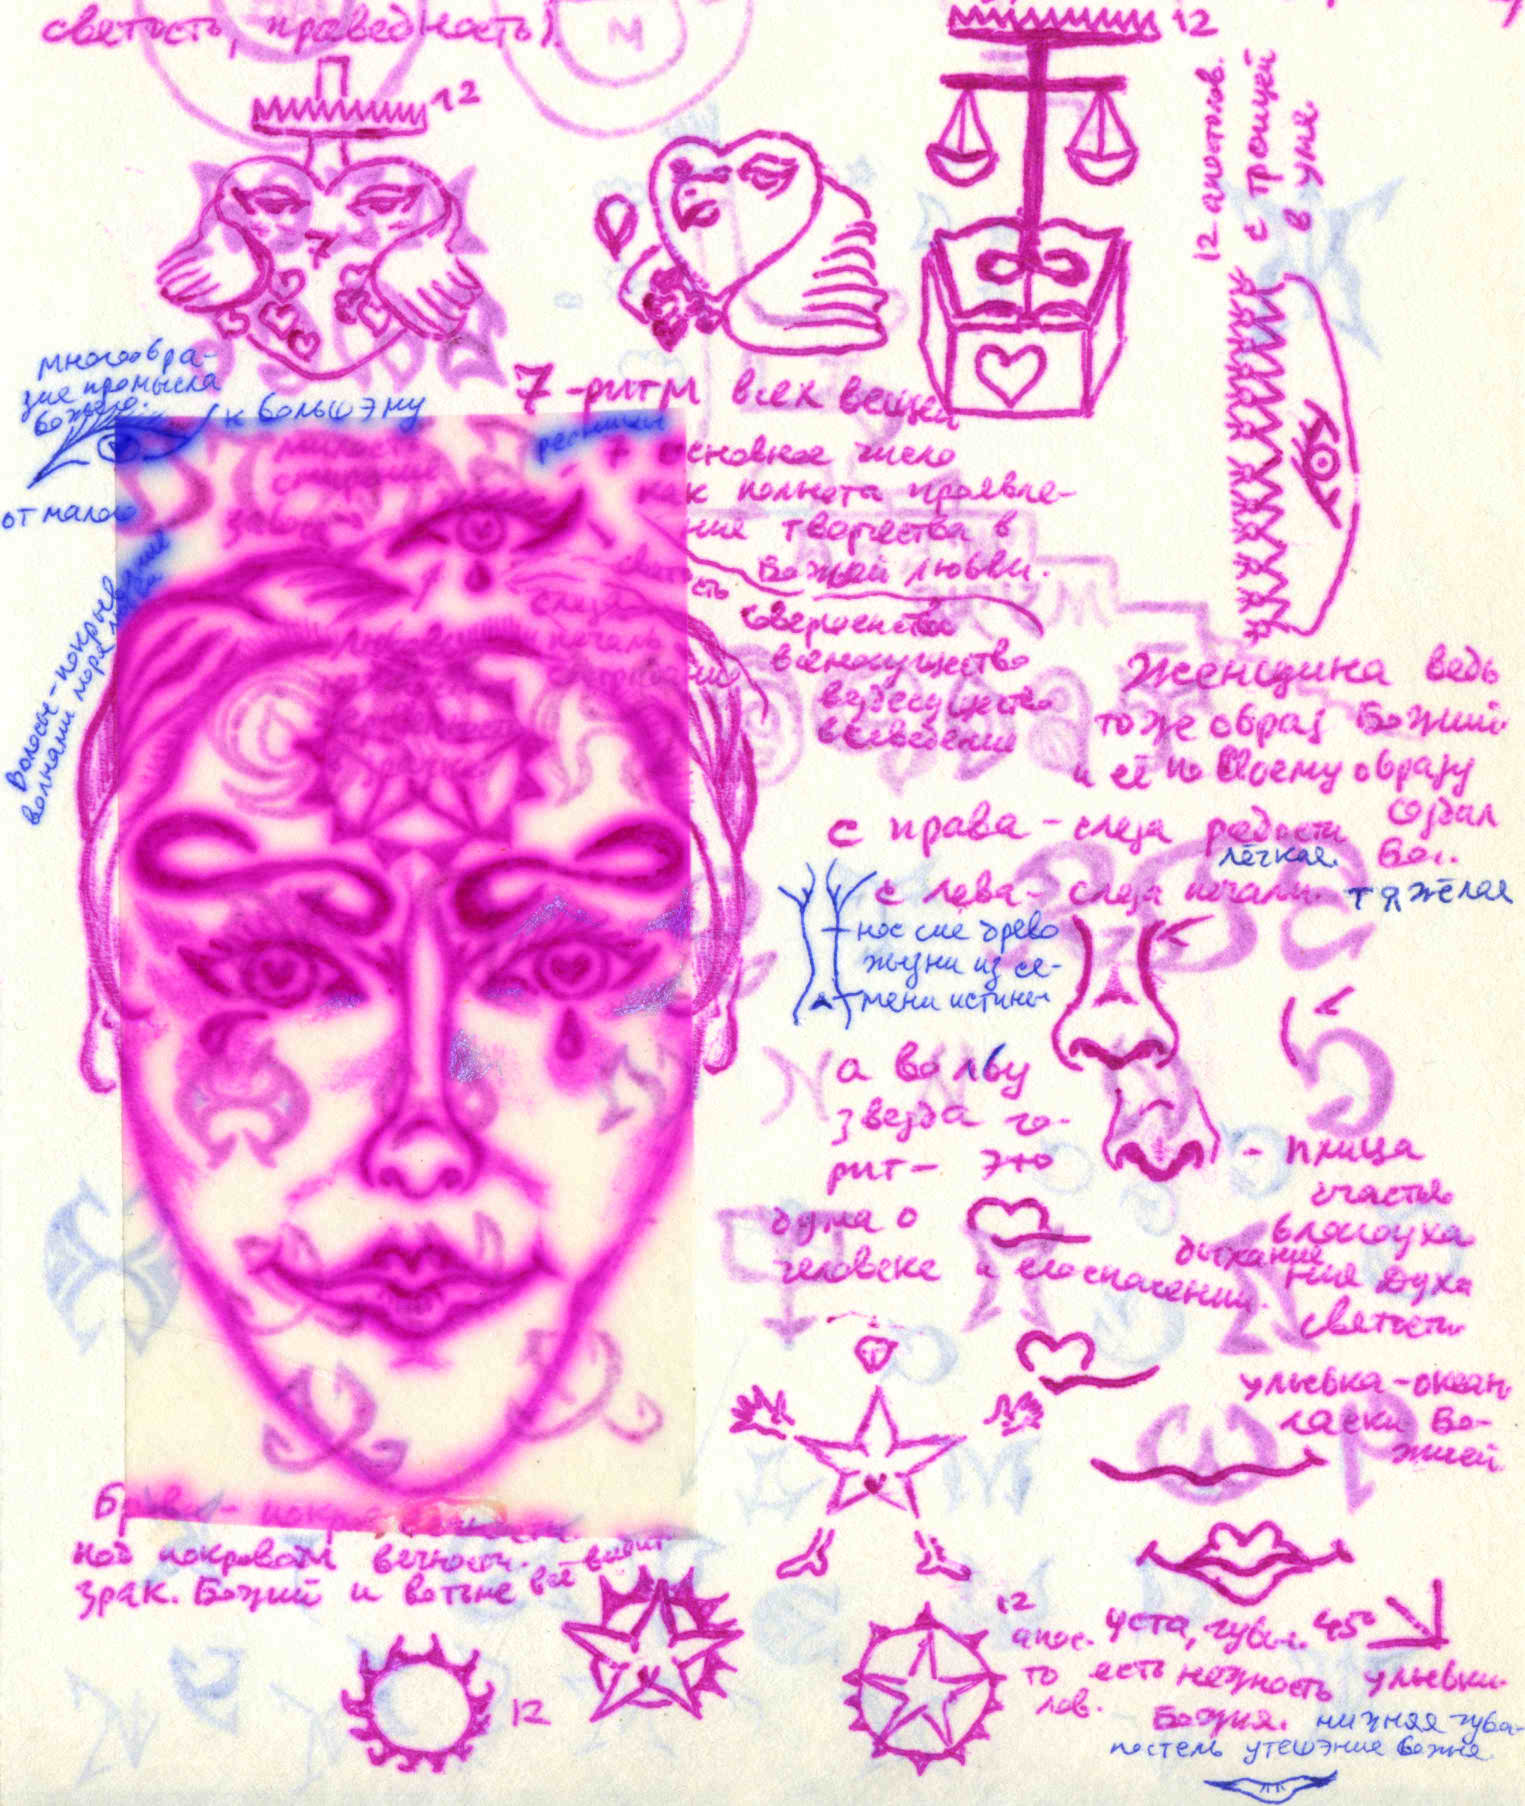 святость, праведность).
М
12
12
7
12 апостолов.
с троицей
в уме
многообра-
зие промысла
Божего.
к большэму
от малого
Волосы - покрыв
волнами моря
7 - ритм всех вещей
ресницы
основное число
как полнота проявле-
ние творчества в
Божьей любви.
слеза
совершенство
всемогущество
вездесущество
всеведение
Женщина ведь
тоже образ Божий
и её по Своему образу
создал
Бог.
с права - слеза радости
лёгкая.
с лева - слеза печали.
тяжёлая
нос сие древо
жызни из се-
мени истины
а во лбу
звезда го-
рит - это
дума о
человеке и его спасении.
- птица
счастья
благоуха
ния духа
святости
дыхание
улыбка - океан
ласки Бо-
жией
под покровом вечности.
зрак. Божий и вотьме всё видит
12
12
апос-
то
лов.
уста, губы. 45°
есть нежность улыбки
Божия.
нижняя губа-
постель утешэние божие